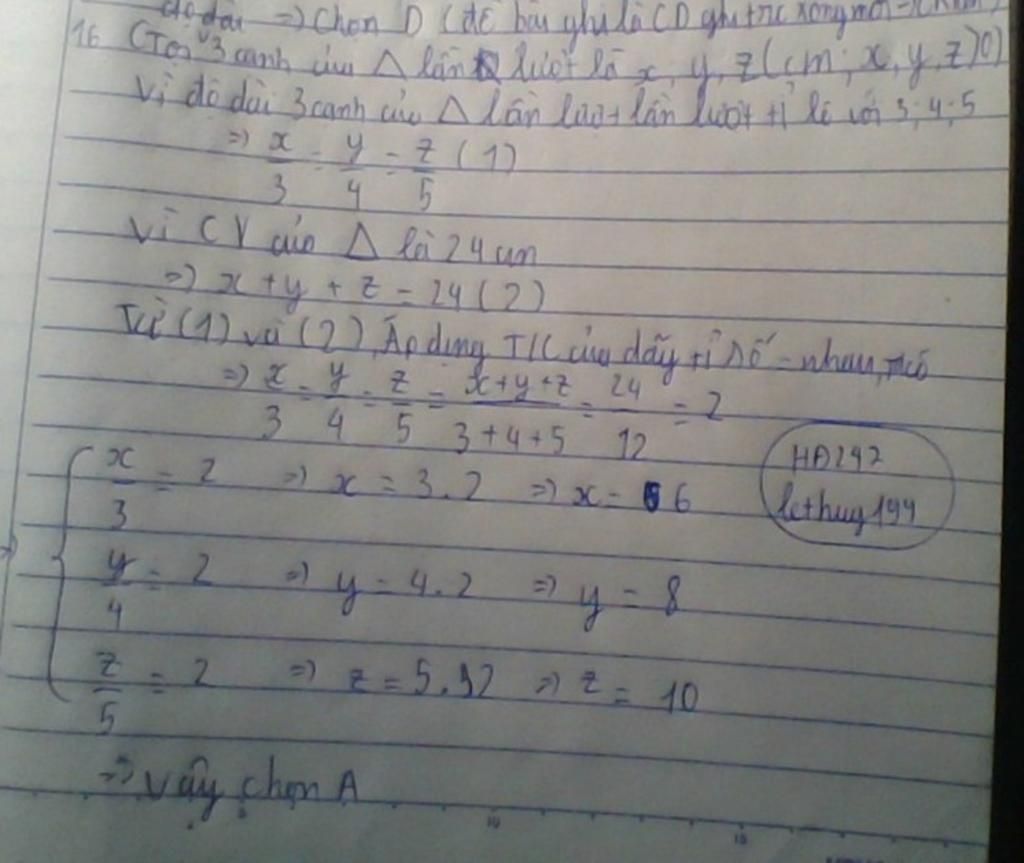 độ dài => Chọn D (đề bài ghi là CD ghi trc xong mới
16 Gọi 3 cạnh của Δ lần lượt là x, y, z (cm; x, y, z > 0)
Vì độ dài 3 cạnh của Δ lần lượt lần lượt tỉ lệ với 3; 4; 5
=> x/3 = y/4 = z/5 (1)
Vì CV của Δ là 24 cm
=> x + y + z = 24 (2)
Từ (1) và (2), Áp dụng T/C của dãy tỉ số = nhau, có
=> x/3 = y/4 = z/5 = x+y+z/3+4+5 = 24/12 = 2
x/3 = 2 => x = 3.2 => x = 6
HA247
lethuy199
y/4 = 2 => y = 4.2 => y = 8
z/5 = 2 => z = 5.2 => z = 10
=> Vậy chọn A
10
15